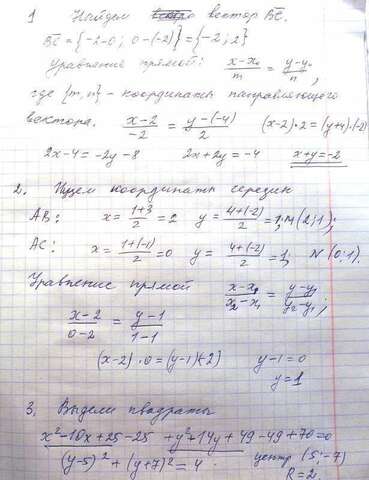 1 Найдем вектор BC.
BC = {-2-0; 0-(-2)} = {-2; 2}
Уравнение прямой: (x-x₀)/m = (y-y₀)/n,
где {m, n} - координаты направляющего
вектора. (x-2)/(-2) = (y-(-4))/2 (x-2)·2 = (y+4)·(-2)
2x-4 = -2y-8 2x+2y = -4 x+y = -2
2. Ищем координаты середин
AB: x = (1+3)/2 = 2 y = (4+(-2))/2 = 1; M(2; 1);
AC: x = (1+(-1))/2 = 0 y = (4+(-2))/2 = 1; N (0; 1).
Уравнение прямой (x-x₁)/(x₂-x₁) = (y-y₁)/(y₂-y₁);
(x-2)/(0-2) = (y-1)/(1-1)
(x-2)·0 = (y-1)(-2) y-1 = 0
y = 1
3. Выдели квадраты
x²-10x+25-25 + y²+14y+49-49+70=0
(y-5)² + (y+7)² = 4 центр (5; -7)
R = 2.